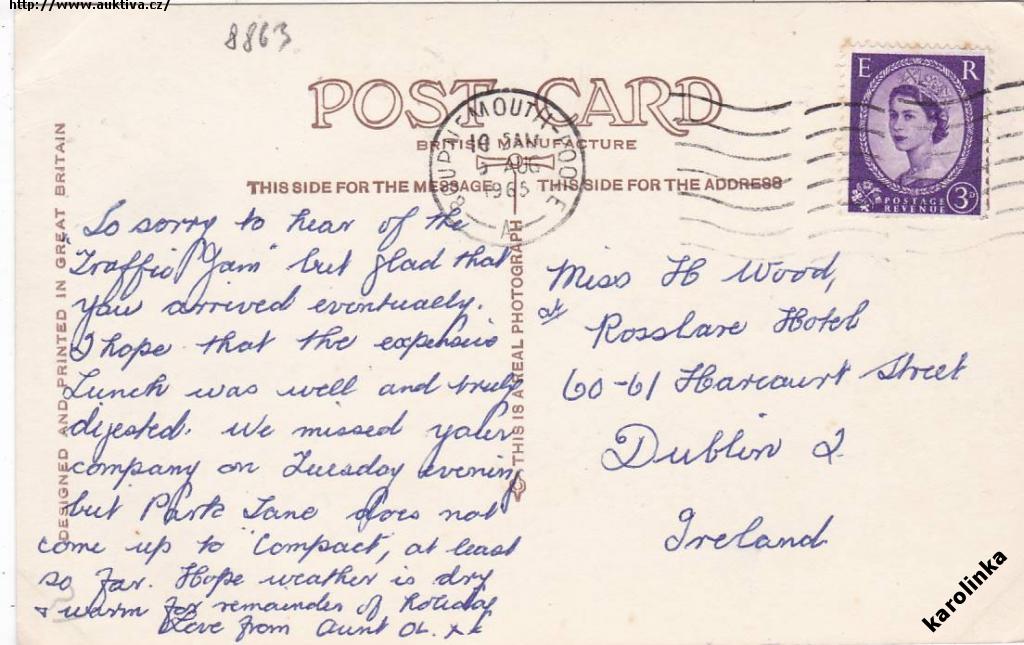 http://www.auktiva.cz/
8863
POST CARD
BRITISH MANUFACTURE
THIS SIDE FOR THE MESSAGE THIS SIDE FOR THE ADDRESS
BOURNEMOUTH-POOLE
10 15AM
5 AUG
1965
A
E R
POSTAGE
REVENUE
3D
DESIGNED AND PRINTED IN GREAT BRITAIN
THIS IS A REAL PHOTOGRAPH
So sorry to hear of the
"Traffic Jam" but glad that
you arrived eventually.
I hope that the expensive
Lunch was well and truly
digested. We missed your
company on Tuesday evening
but Park Lane does not
come up to "Compact", at least
so far. Hope weather is dry
& warm for remainder of holiday
Love from Aunt Ol. xx
Miss H Wood,
at Rosslare Hotel
60-61 Harcourt Street
Dublin 2
Ireland
karolinka